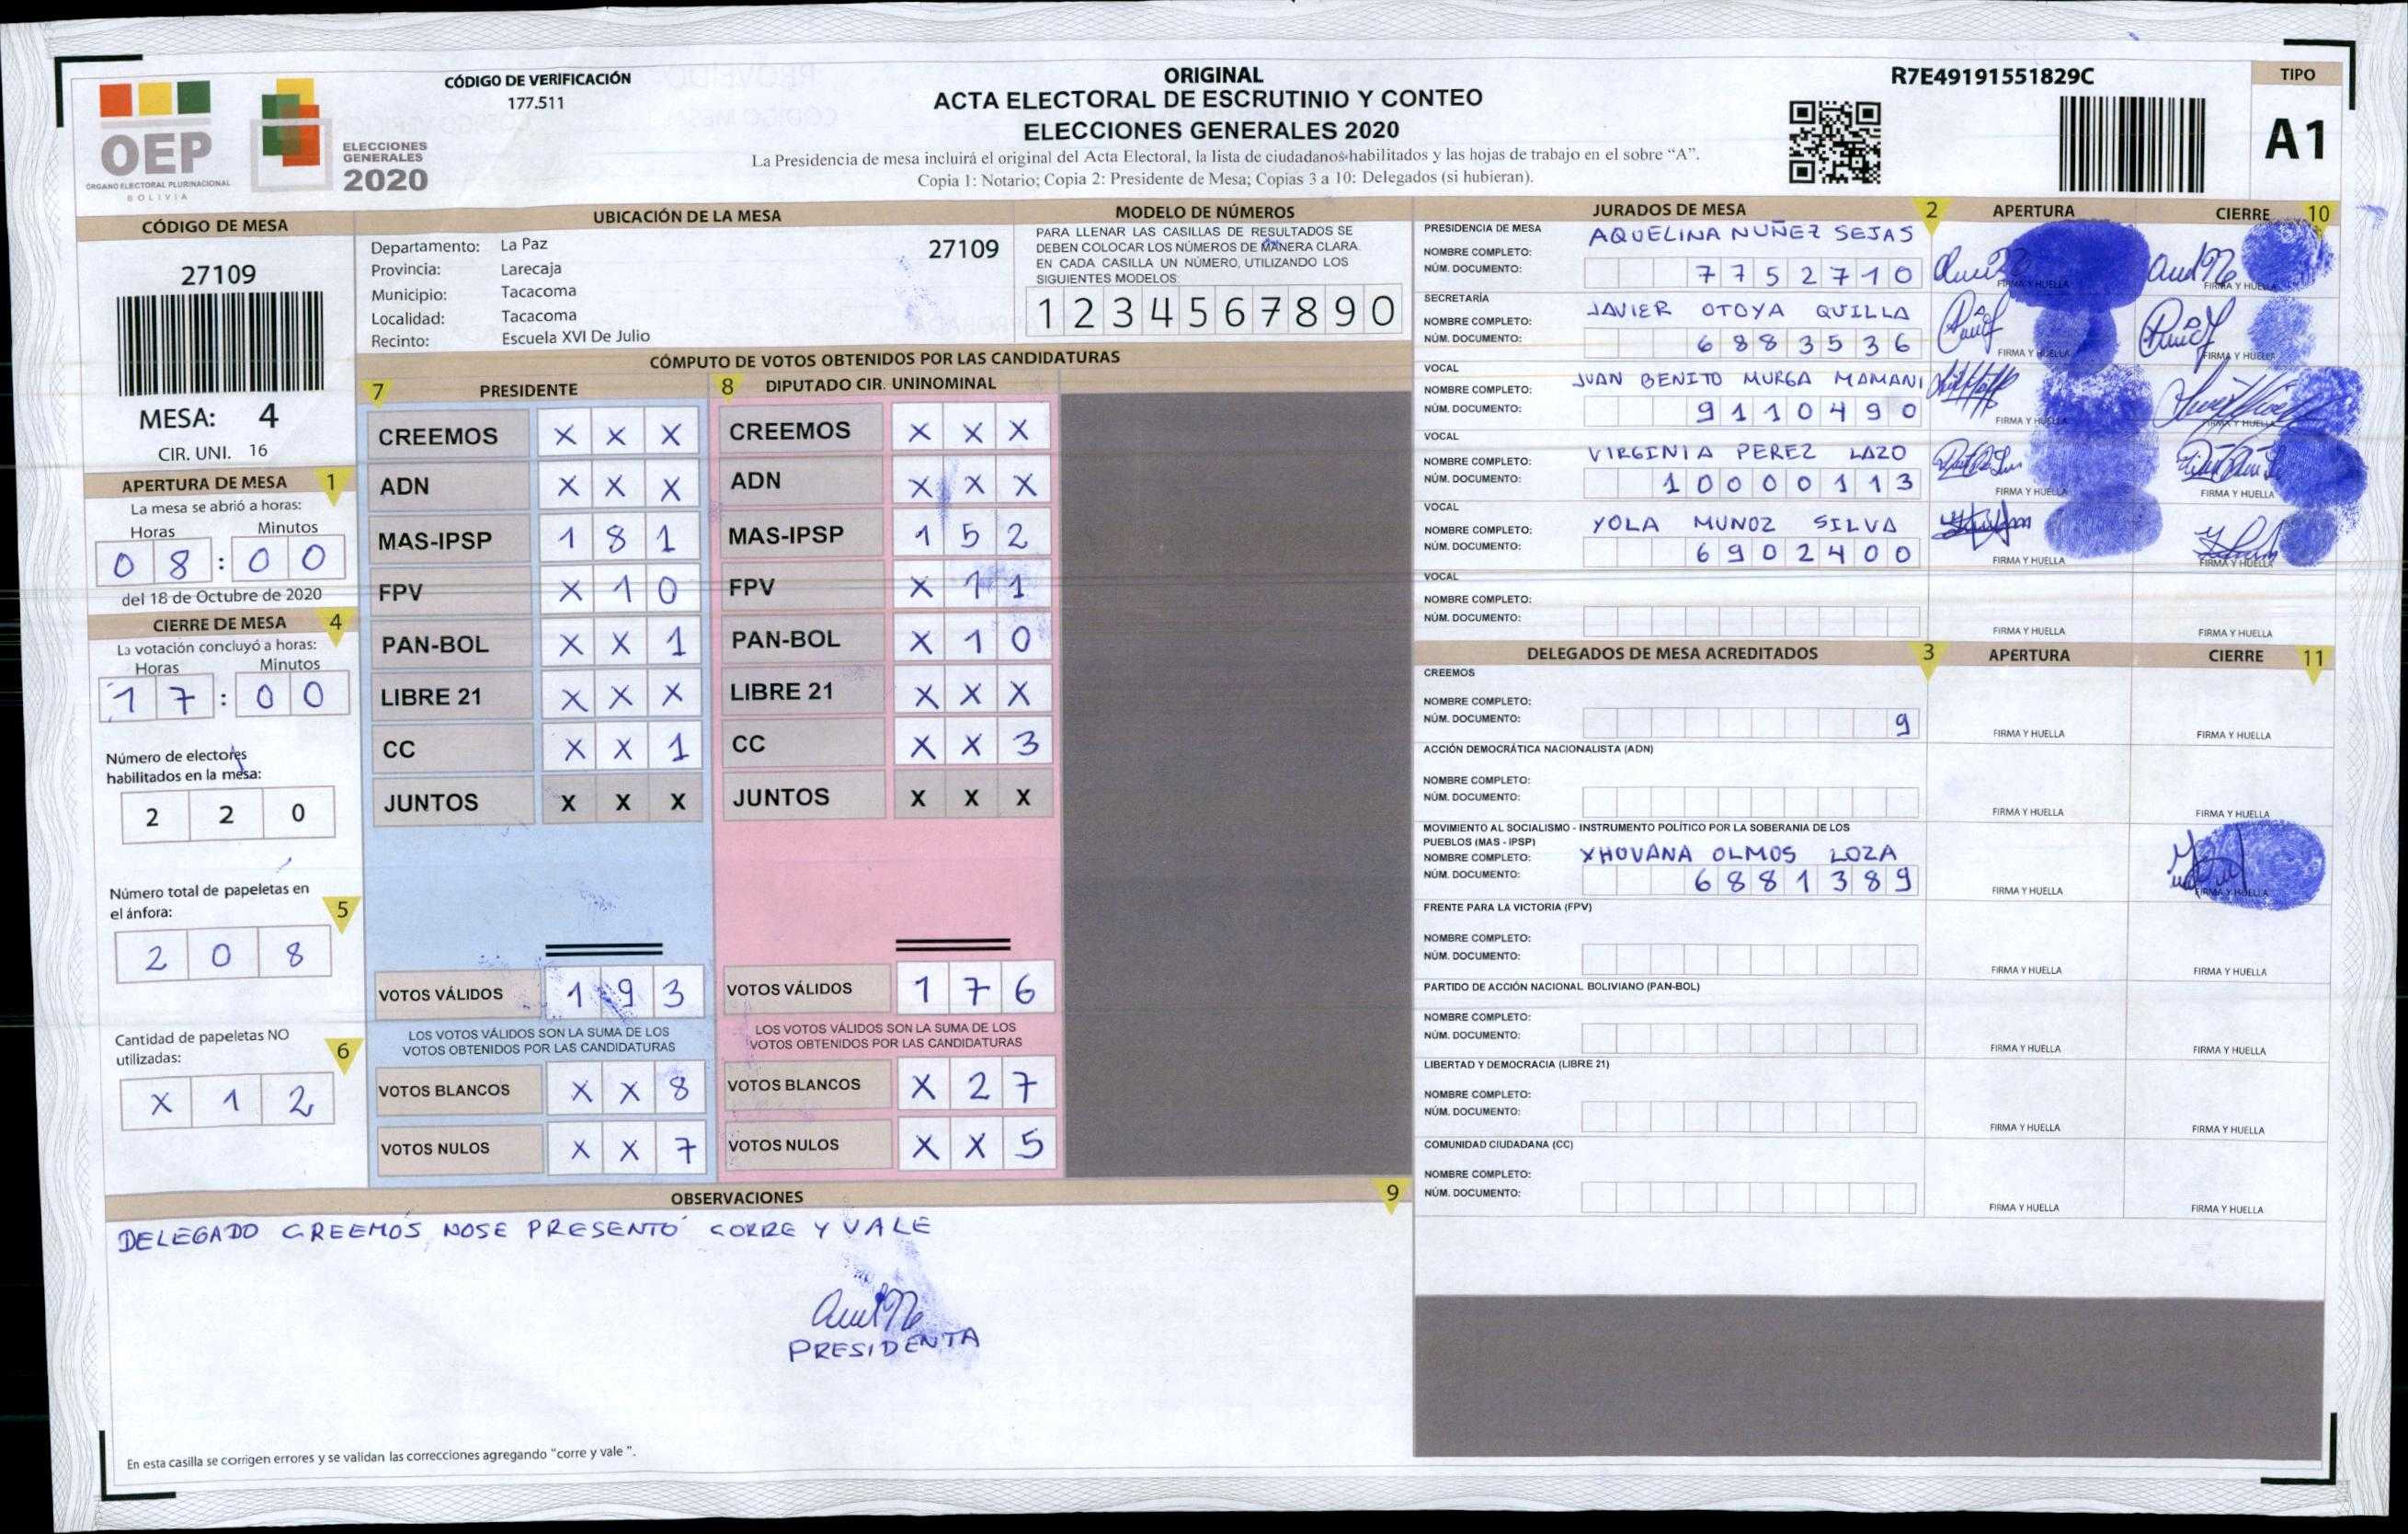 CÓDIGO DE VERIFICACIÓN
177.511
ORIGINAL
ACTA ELECTORAL DE ESCRUTINIO Y CONTEO
ELECCIONES GENERALES 2020
La Presidencia de mesa incluirá el original del Acta Electoral, la lista de ciudadanos habilitados y las hojas de trabajo en el sobre “A”.
Copia 1: Notario; Copia 2: Presidente de Mesa; Copias 3 a 10: Delegados (si hubieran).
R7E49191551829C
TIPO
A1
OEP
ÓRGANO ELECTORAL PLURINACIONAL
BOLIVIA
ELECCIONES
GENERALES
2020
CÓDIGO DE MESA
27109
MESA: 4
CIR. UNI. 16
APERTURA DE MESA 1
La mesa se abrió a horas:
Horas Minutos
0 8 : 0 0
del 18 de Octubre de 2020
CIERRE DE MESA 4
La votación concluyó a horas:
Horas Minutos
1 7 : 0 0
Número de electores
habilitados en la mesa:
2 2 0
Número total de papeletas en
el ánfora: 5
2 0 8
Cantidad de papeletas NO
utilizadas: 6
X 1 2
UBICACIÓN DE LA MESA
Departamento: La Paz 27109
Provincia: Larecaja
Municipio: Tacacoma
Localidad: Tacacoma
Recinto: Escuela XVI De Julio
MODELO DE NÚMEROS
PARA LLENAR LAS CASILLAS DE RESULTADOS SE
DEBEN COLOCAR LOS NÚMEROS DE MANERA CLARA.
EN CADA CASILLA UN NÚMERO, UTILIZANDO LOS
SIGUIENTES MODELOS:
1 2 3 4 5 6 7 8 9 0
CÓMPUTO DE VOTOS OBTENIDOS POR LAS CANDIDATURAS
7 PRESIDENTE 8 DIPUTADO CIR. UNINOMINAL
CREEMOS X X X CREEMOS X X X
ADN X X X ADN X X X
MAS-IPSP 1 8 1 MAS-IPSP 1 5 2
FPV X 1 0 FPV X 1 1
PAN-BOL X X 1 PAN-BOL X 1 0
LIBRE 21 X X X LIBRE 21 X X X
CC X X 1 CC X X 3
JUNTOS X X X JUNTOS X X X
VOTOS VÁLIDOS 1 9 3 VOTOS VÁLIDOS 1 7 6
LOS VOTOS VÁLIDOS SON LA SUMA DE LOS LOS VOTOS VÁLIDOS SON LA SUMA DE LOS
VOTOS OBTENIDOS POR LAS CANDIDATURAS VOTOS OBTENIDOS POR LAS CANDIDATURAS
VOTOS BLANCOS X X 8 VOTOS BLANCOS X 2 7
VOTOS NULOS X X 7 VOTOS NULOS X X 5
OBSERVACIONES 9
DELEGADO CREEMOS NOSE PRESENTÓ CORRE Y VALE
PRESIDENTA
En esta casilla se corrigen errores y se validan las correcciones agregando “corre y vale ”.
JURADOS DE MESA 2 APERTURA CIERRE 10
PRESIDENCIA DE MESA
NOMBRE COMPLETO: AQUELINA NUÑEZ SEJAS
NÚM. DOCUMENTO: 7 7 5 2 7 1 0
FIRMA Y HUELLA FIRMA Y HUELLA
SECRETARÍA
NOMBRE COMPLETO: JAVIER OTOYA QUILLA
NÚM. DOCUMENTO: 6 8 8 3 5 3 6
FIRMA Y HUELLA FIRMA Y HUELLA
VOCAL
NOMBRE COMPLETO: JUAN BENITO MURGA MAMANI
NÚM. DOCUMENTO: 9 1 1 0 4 9 0
FIRMA Y HUELLA FIRMA Y HUELLA
VOCAL
NOMBRE COMPLETO: VIRGINIA PEREZ LAZO
NÚM. DOCUMENTO: 1 0 0 0 0 1 1 3
FIRMA Y HUELLA FIRMA Y HUELLA
VOCAL
NOMBRE COMPLETO: YOLA MUNOZ SILVA
NÚM. DOCUMENTO: 6 9 0 2 4 0 0
FIRMA Y HUELLA FIRMA Y HUELLA
VOCAL
NOMBRE COMPLETO:
NÚM. DOCUMENTO:
FIRMA Y HUELLA FIRMA Y HUELLA
DELEGADOS DE MESA ACREDITADOS 3 APERTURA CIERRE 11
CREEMOS
NOMBRE COMPLETO:
NÚM. DOCUMENTO: 9
FIRMA Y HUELLA FIRMA Y HUELLA
ACCIÓN DEMOCRÁTICA NACIONALISTA (ADN)
NOMBRE COMPLETO:
NÚM. DOCUMENTO:
FIRMA Y HUELLA FIRMA Y HUELLA
MOVIMIENTO AL SOCIALISMO - INSTRUMENTO POLÍTICO POR LA SOBERANIA DE LOS
PUEBLOS (MAS - IPSP)
NOMBRE COMPLETO: XHOVANA OLMOS LOZA
NÚM. DOCUMENTO: 6 8 8 1 3 8 9
FIRMA Y HUELLA FIRMA Y HUELLA
FRENTE PARA LA VICTORIA (FPV)
NOMBRE COMPLETO:
NÚM. DOCUMENTO:
FIRMA Y HUELLA FIRMA Y HUELLA
PARTIDO DE ACCIÓN NACIONAL BOLIVIANO (PAN-BOL)
NOMBRE COMPLETO:
NÚM. DOCUMENTO:
FIRMA Y HUELLA FIRMA Y HUELLA
LIBERTAD Y DEMOCRACIA (LIBRE 21)
NOMBRE COMPLETO:
NÚM. DOCUMENTO:
FIRMA Y HUELLA FIRMA Y HUELLA
COMUNIDAD CIUDADANA (CC)
NOMBRE COMPLETO:
NÚM. DOCUMENTO:
FIRMA Y HUELLA FIRMA Y HUELLA